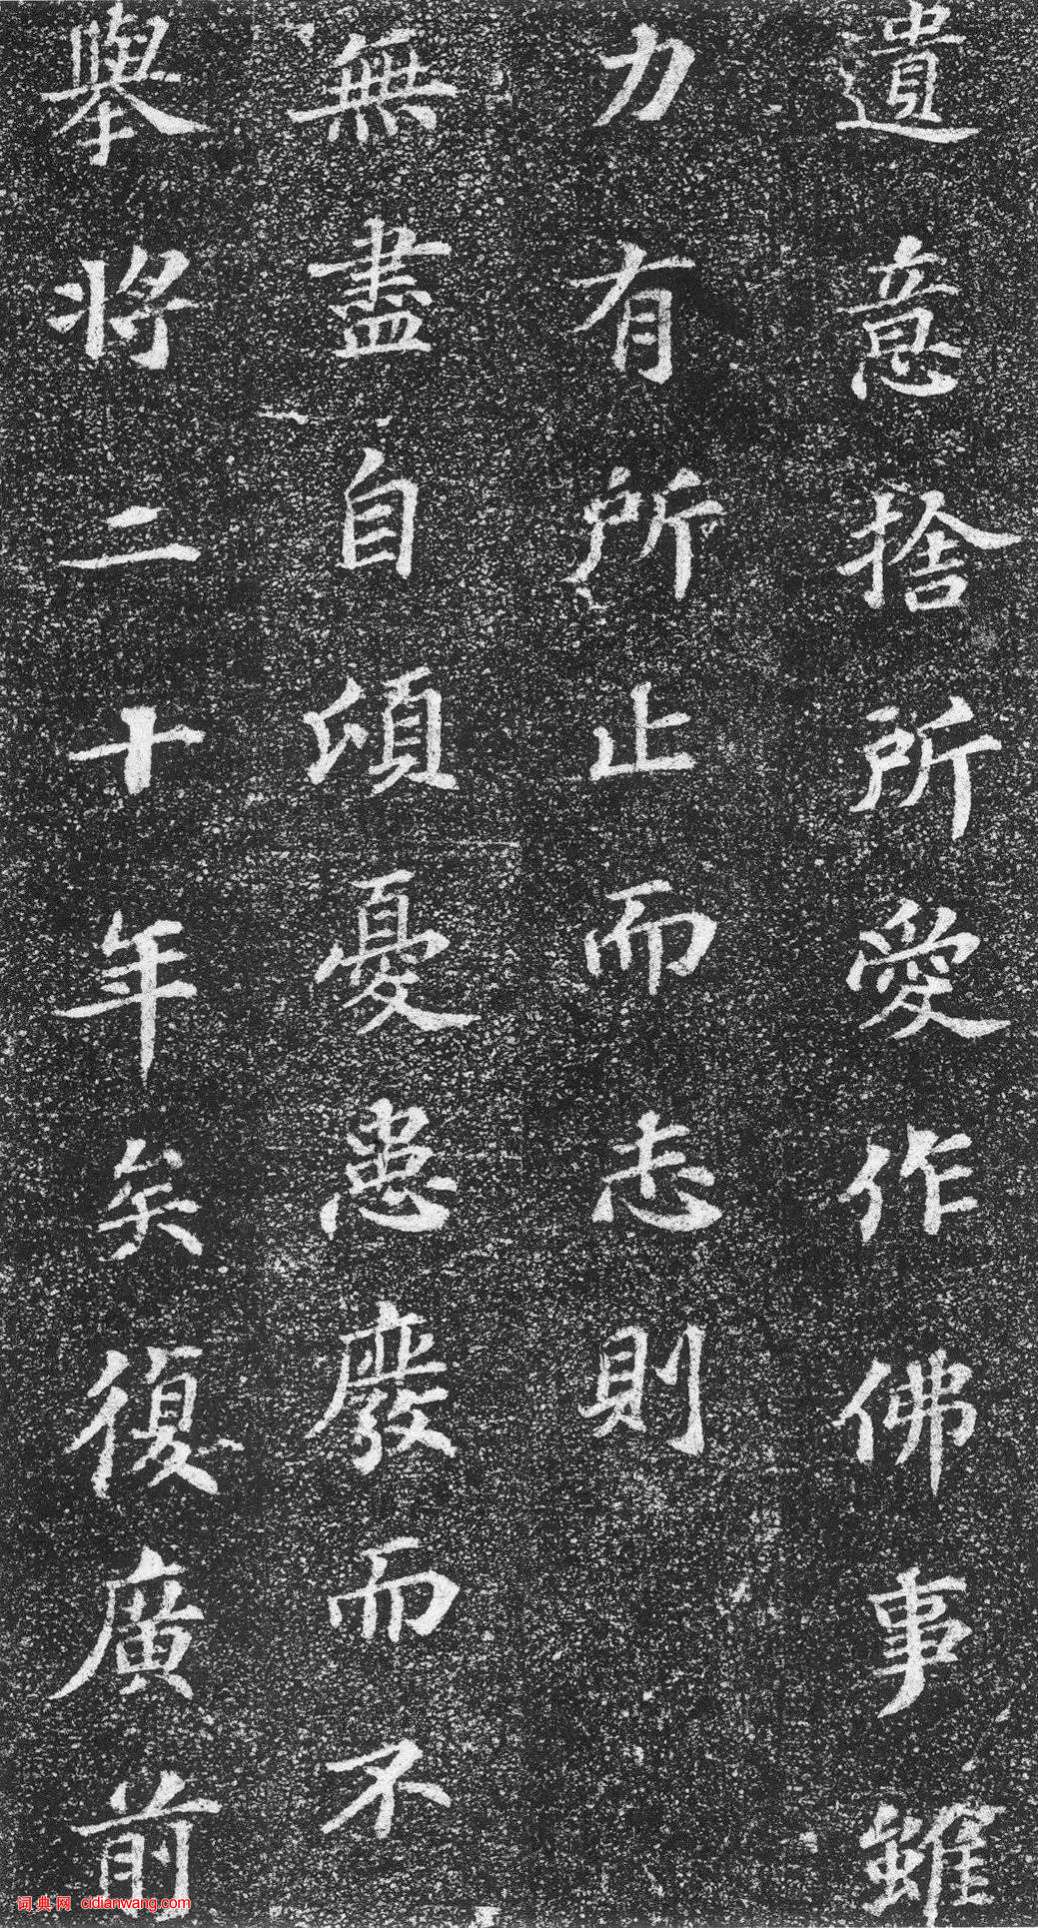 遺意捨所愛作佛事雖
力有所止而志則
無盡自頃憂患廢而不
舉將二十年矣復廣前
词典网 cidianwang.com